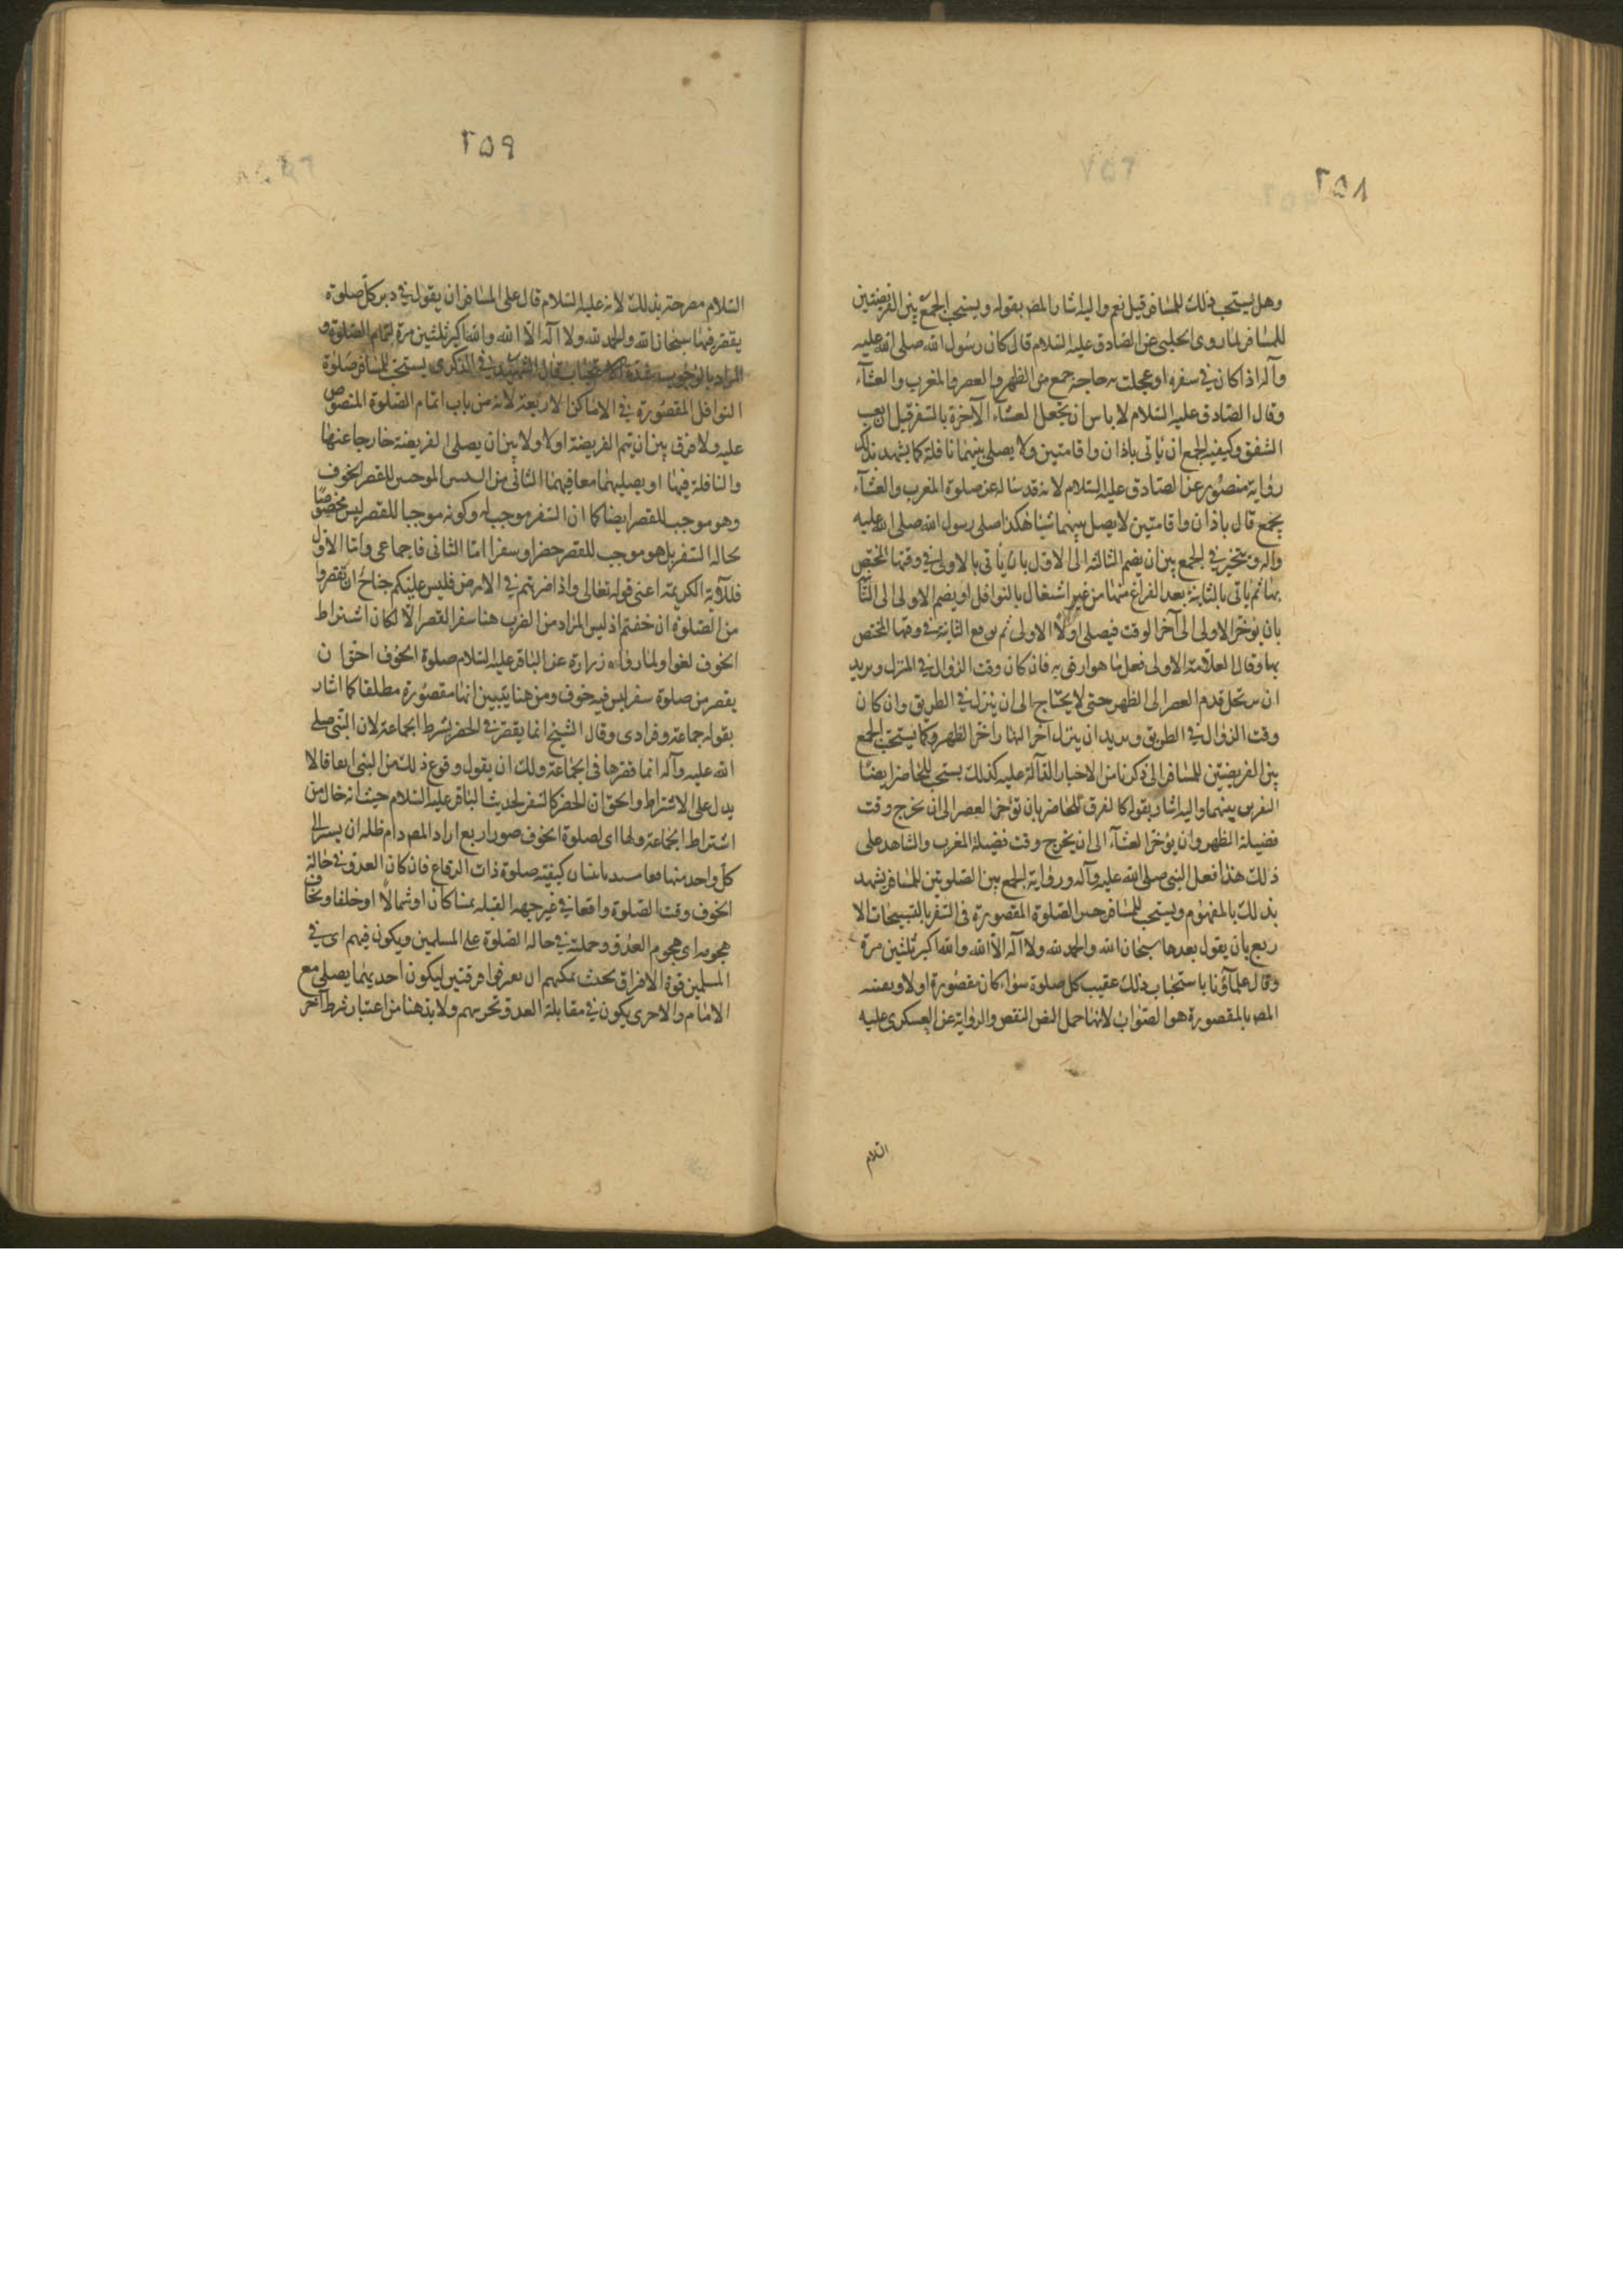 ٢٥٨
وهل يستحب ذلك للمسافر قيل نعم واليه اشار المصـ بقوله ويستحب الجمع بين الفريضتين
للمسافر لما روى الحلبي عن الصادق عليه السلام قال كان رسول الله صلى الله عليه
وآله اذا كان في سفره او عجلت به حاجة جمع من الظهر والعصر والمغرب والعشآء
وقال الصادق عليه السلام لا باس ان يتعجل العشاء الآخرة بالسفر قبل ان يغيب
الشفق وكيفية الجمع ان ياتى باذان واقامتين ولا يصلى بينهما نافلة كما يشهد بذلك
رواية منصور عن الصادق عليه السلام لانه قد ساله عن صلوة المغرب والعشآء
يجمع قال باذان واقامتين لا يصل بينهما شيئا هكذا صلى رسول الله صلى الله عليه
وآله ويتخير في الجمع بين ان يضم الثانية الى الاول بان ياتى بالاولى في وقتها المختص
بها ثم ياتى بالثانية بعد الفراغ منها من غير اشتغال بالنوافل او يضم الاولى الى الثا
بان يوخر الاولى الى آخر الوقت فيصلى اولا الاولى ثم يوقع الثانية في وقتها المختص
بها وقال العلامة الاولى فعل ما هو ارفق به فان كان وقت الزوال في المنزل ويريد
ان يرتحل قدم العصر الى الظهر حتى لا يحتاج الى ان ينزل في الطريق وان كان
وقت الزوال في الطريق ويريد ان ينزل آخر النهار اخر الظهر وكما يستحب الجمع
بين الفريضتين للمسافر الى ذكرنا من الاخبار الدالة عليه كذلك يستحب للحاضر ايضا
التفريق بينهما واليه اشار بقوله كالفرق للحاضر بان توخر العصر الى ان يخرج وقت
فضيلة الظهر وان يؤخر العشآء الى ان يخرج وقت فضيلة المغرب والشاهد على
ذلك هذا فعل النبي صلى الله عليه وآله ورواية الجمع بين الصلوتين للمسافر يشهد
بذلك بالمفهوم ويستحب للمسافر جبر الصلوة المقصورة في السفر بالتسبيحات الا
ربع بان يقول بعدها سبحان الله والحمد لله ولا اله الا الله والله اكبر ثلثين مرة
وقال علماؤنا باستحباب ذلك عقيب كل صلوة سواء كان مقصورة او لا وتعبير
المصـ بالمقصورة هو الصواب لانها محل النص النقص والرواية عن العسكري عليه
السلام
٢٥٩
السلام مصرحة بذلك لانه عليه السلام قال على المسافر ان يقول في دبر كل صلوة
يقصر فيها سبحان الله والحمد لله ولا اله الا الله والله اكبر ثلثين مرة لتمام الصلوة و
المراد بالوجوب شدة الاستحباب قال الشهيد في الذكرى يستحب للمسافر صلوة
النوافل المقصورة في الاماكن الاربعة لانه من باب اتمام الصلوة المنصوص
عليه ولا فرق بين ان يتم الفريضة او لا ولا بين ان يصلى الفريضة خارجا عنها
والنافلة فيها او يصليهما معا فيها الثانى من السببين الموجبين للقصر الخوف
وهو موجب للقصر ايضا كما ان السفر موجب له وكونه موجبا للقصر ليس مخصوصا
بحالة السفر بل هو موجب للقصر حضرا وسفرا اما الثانى فاجماعى واما الاول
فللآية الكريمة اعنى قوله تعالى واذا ضربتم في الارض فليس عليكم جناح ان تقصروا
من الصلوة ان خفتم اذ ليس المراد من الضرب هنا سفر القصر الا لكان اشتراط
الخوف لغوا ولما رواه زرارة عن الباقر عليه السلام صلوة الخوف احق ان
يقصر من صلوة سفر ليس فيه خوف ومن هنا يتبين انها مقصورة مطلقا كما اشار
بقوله جماعة وفرادى وقال الشيخ انما يقصر في الحضر بشرط الجماعة لان النبي صلى
الله عليه وآله انما قصرها في الجماعة ولك ان يقول وقوع ذلك من النبي اتفاقا لا
يدل على الاشتراط والحق ان الحضر كالسفر لحديث الباقر عليه السلام حيث انه خال من
اشتراط الجماعة ولها اى لصلوة الخوف صور اربع اراد المصـ دام ظله ان يشير الى
كل واحد منها كيفية صلوة ذات الرقاع فان كان العدو في حالة
الخوف وقت الصلوة واقعا في غير جهة القبلة يمينا كان او شمالا او خلفا ويخاف
هجومه اى هجوم العدو وحملته في حالة الصلوة على المسلمين ويكون فيهم اى في
المسلمين قوة الافتراق بحيث يمكنهم ان يفرقوا فرقتين ليكون احديهما يصلى مع
الامام والاخرى يكون في مقابلة العدو تحرسهم ولا بد هنا من اعتبار شرط آخر